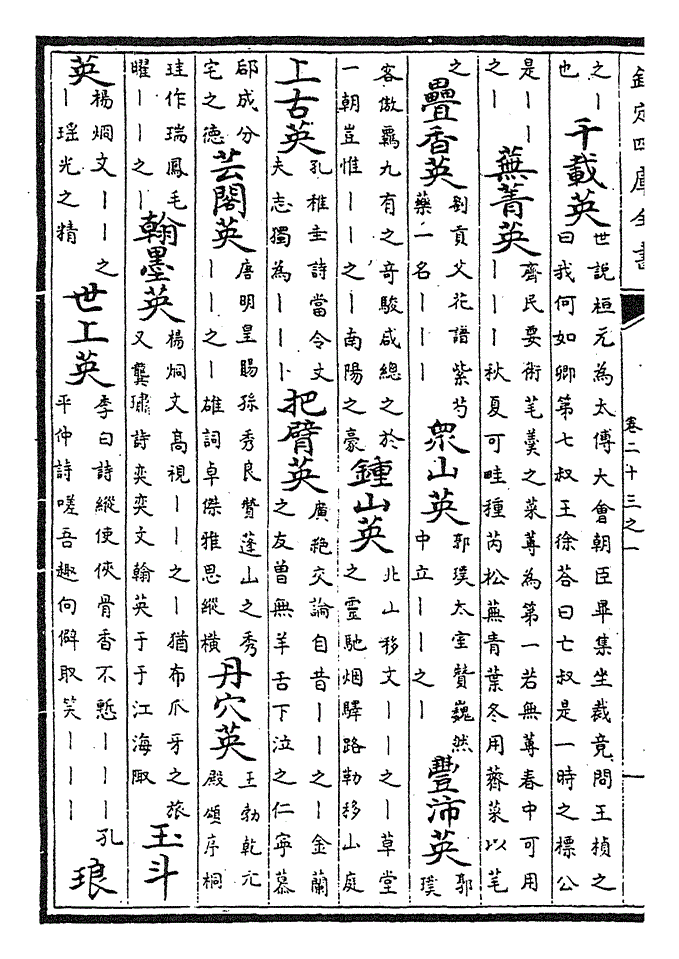 欽定四庫全書
卷二十三之一
一
之｜
也
千載英
世說桓元為太傅大會朝臣畢集坐裁竟問王楨之
曰我何如卿第七叔王徐荅曰亡叔是一時之標公
是｜｜
之｜
蕪菁英
齊民要術芼羹之菜蓴為第一若無蓴春中可用
｜｜｜秋夏可畦種芮松蕪青葉冬用薺菜以芼
之
疊香英
劉貢父花譜紫芍
藥一名｜｜｜
衆山英
郭璞太室贊巍然
中立｜｜之｜
豐沛英
郭
璞
客傲羈九有之奇駿咸總之於
一朝豈惟｜｜之｜南陽之豪
鍾山英
北山移文｜｜之｜草堂
之靈馳烟驛路勒移山庭
上古英
孔稚圭詩當令丈
夫志獨為｜｜｜
把臂英
廣絶交論自昔｜｜之｜金蘭
之友曽無羊舌下泣之仁寧慕
郈成分
宅之德
芸閣英
唐明皇賜孫秀良贊蓬山之秀
｜｜之｜雄詞卓傑雅思縱橫
丹穴英
王勃乾元
殿頌序桐
珪作瑞鳳毛
曜｜｜之｜
翰墨英
楊炯文高視｜｜之｜猶布爪牙之旅
又龔璛詩奕奕文翰英于于江海陬
玉斗
英
楊炯文｜｜之
｜瑶光之精
世上英
李白詩縱使俠骨香不慙｜｜｜孔
平仲詩嗟吾趣向僻取笑｜｜｜
琅